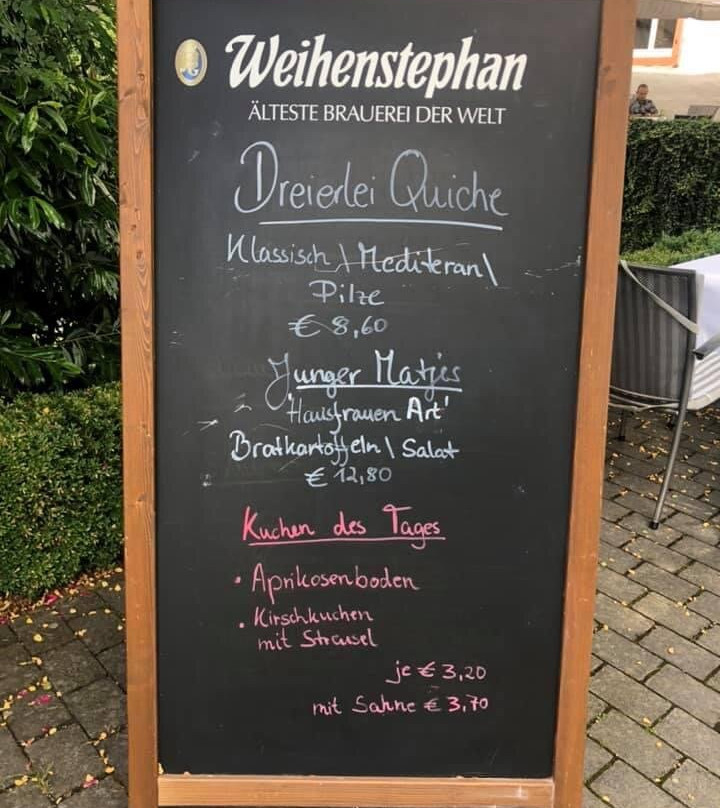 Weihenstephan
ÄLTESTE BRAUEREI DER WELT
Dreierlei Quiche
Klassisch \ Mediteran \
Pilze
€ 8,60
Junger Matjes
'Hausfrauen Art'
Bratkartoffeln \ Salat
€ 12,80
Kuchen des Tages
• Aprikosenboden
• Kirschkuchen
mit Streusel
je € 3,20
mit Sahne € 3,70